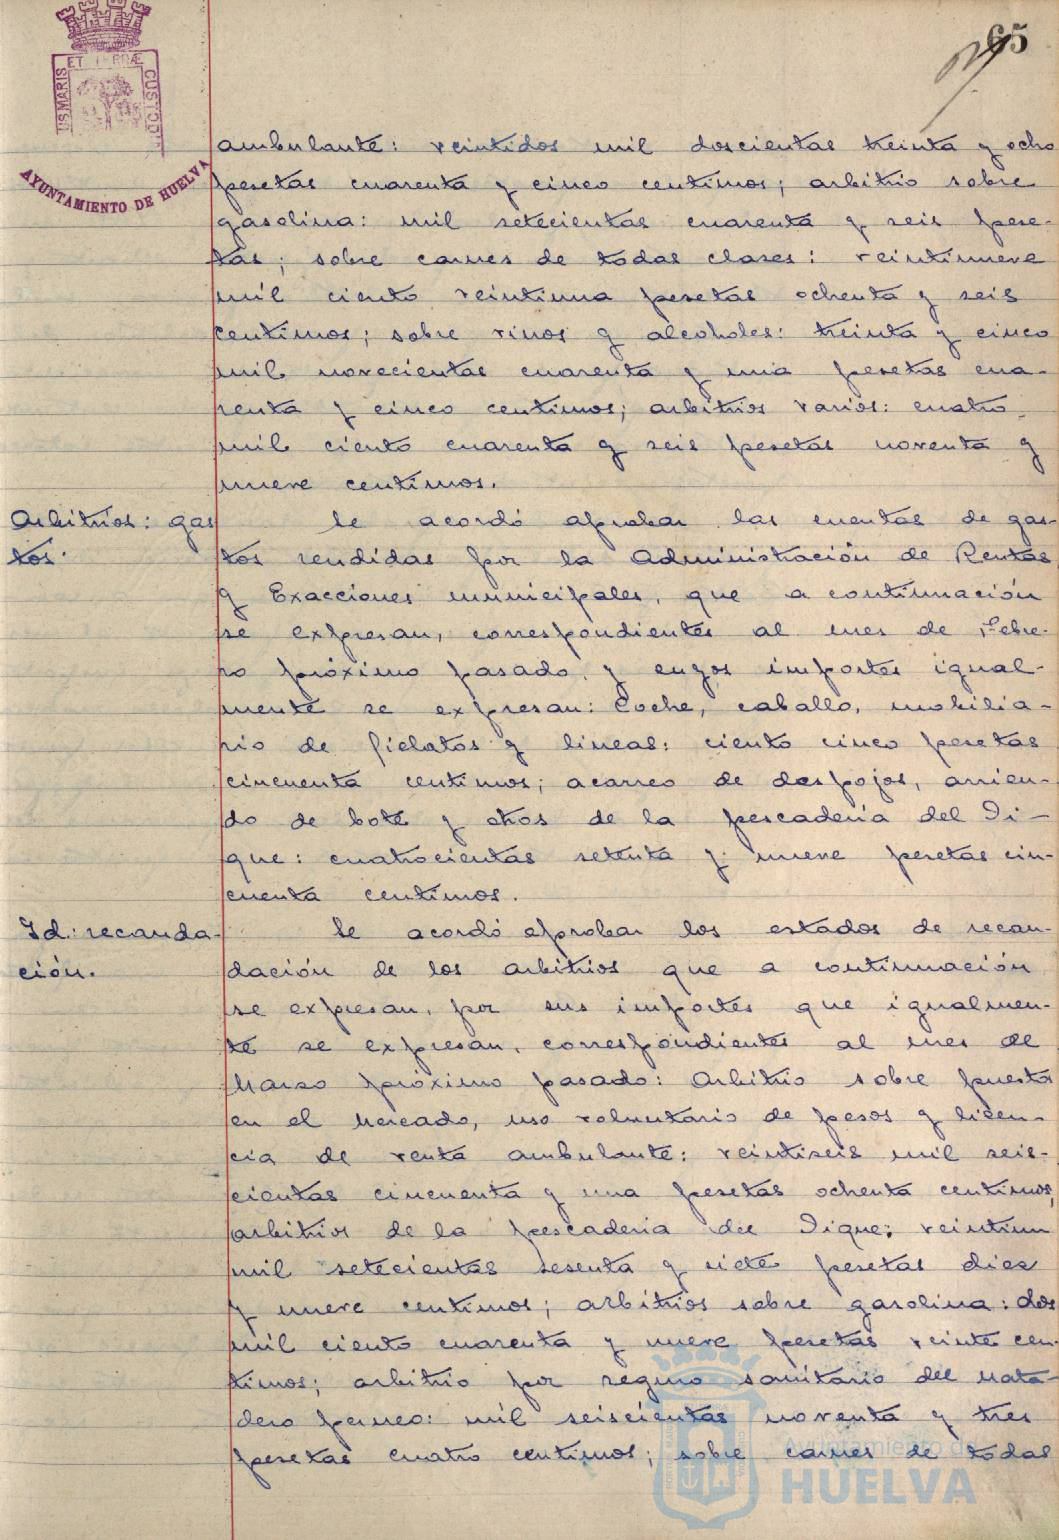 65
US MARIS ET TERRÆ CUSTOD
AYUNTAMIENTO DE HUELVA
ambulante: veintidos mil doscientas treinta y ocho
pesetas cuarenta y cinco centimos; arbitrio sobre
gasolina: mil setecientas cuarenta y seis pese-
tas; sobre carnes de todas clases: veintinueve
mil ciento veintiuna pesetas ochenta y seis
centimos; sobre vinos y alcoholes: treinta y cinco
mil novecientas cuarenta y una pesetas cua-
renta y cinco centimos; arbitrios varios: cuatro
mil ciento cuarenta y seis pesetas noventa y
nueve centimos.
Arbitrios: gas
tos.
Se acordó aprobar las cuentas de gas-
tos rendidas por la Administración de Rentas
y Exacciones municipales, que a continuación
se expresan, correspondientes al mes de Febre-
ro próximo pasado, y cuyos importes igual-
mente se expresan: Coche, caballo, mobilia-
rio de fielatos y lineas: ciento cinco pesetas
cincuenta centimos; acarreo de despojos, arrien-
do de bote y otros de la pescaderia del Di-
que: cuatrocientas setenta y nueve pesetas cin-
cuenta centimos.
Id: recauda-
ción.
Se acordó aprobar los estados de recau-
dación de los arbitrios que a continuación
se expresan, por sus importes que igualmen-
te se expresan, correspondientes al mes de
Marzo próximo pasado: Arbitrio sobre puestos
en el Mercado, uso voluntario de pesos y licen-
cia de venta ambulante: veintiseis mil seis-
cientas cincuenta y una pesetas ochenta centimos,
arbitrios de la pescaderia del Dique: veintiun
mil setecientas sesenta y siete pesetas diez
y nueve centimos; arbitrios sobre gasolina: dos
mil ciento cuarenta y nueve pesetas veinte cen-
timos; arbitrio por seguro sanitario del Mata-
dero porcino: mil seiscientas noventa y tres
pesetas cuatro centimos; sobre carnes de todas
Ayuntamiento de
HUELVA